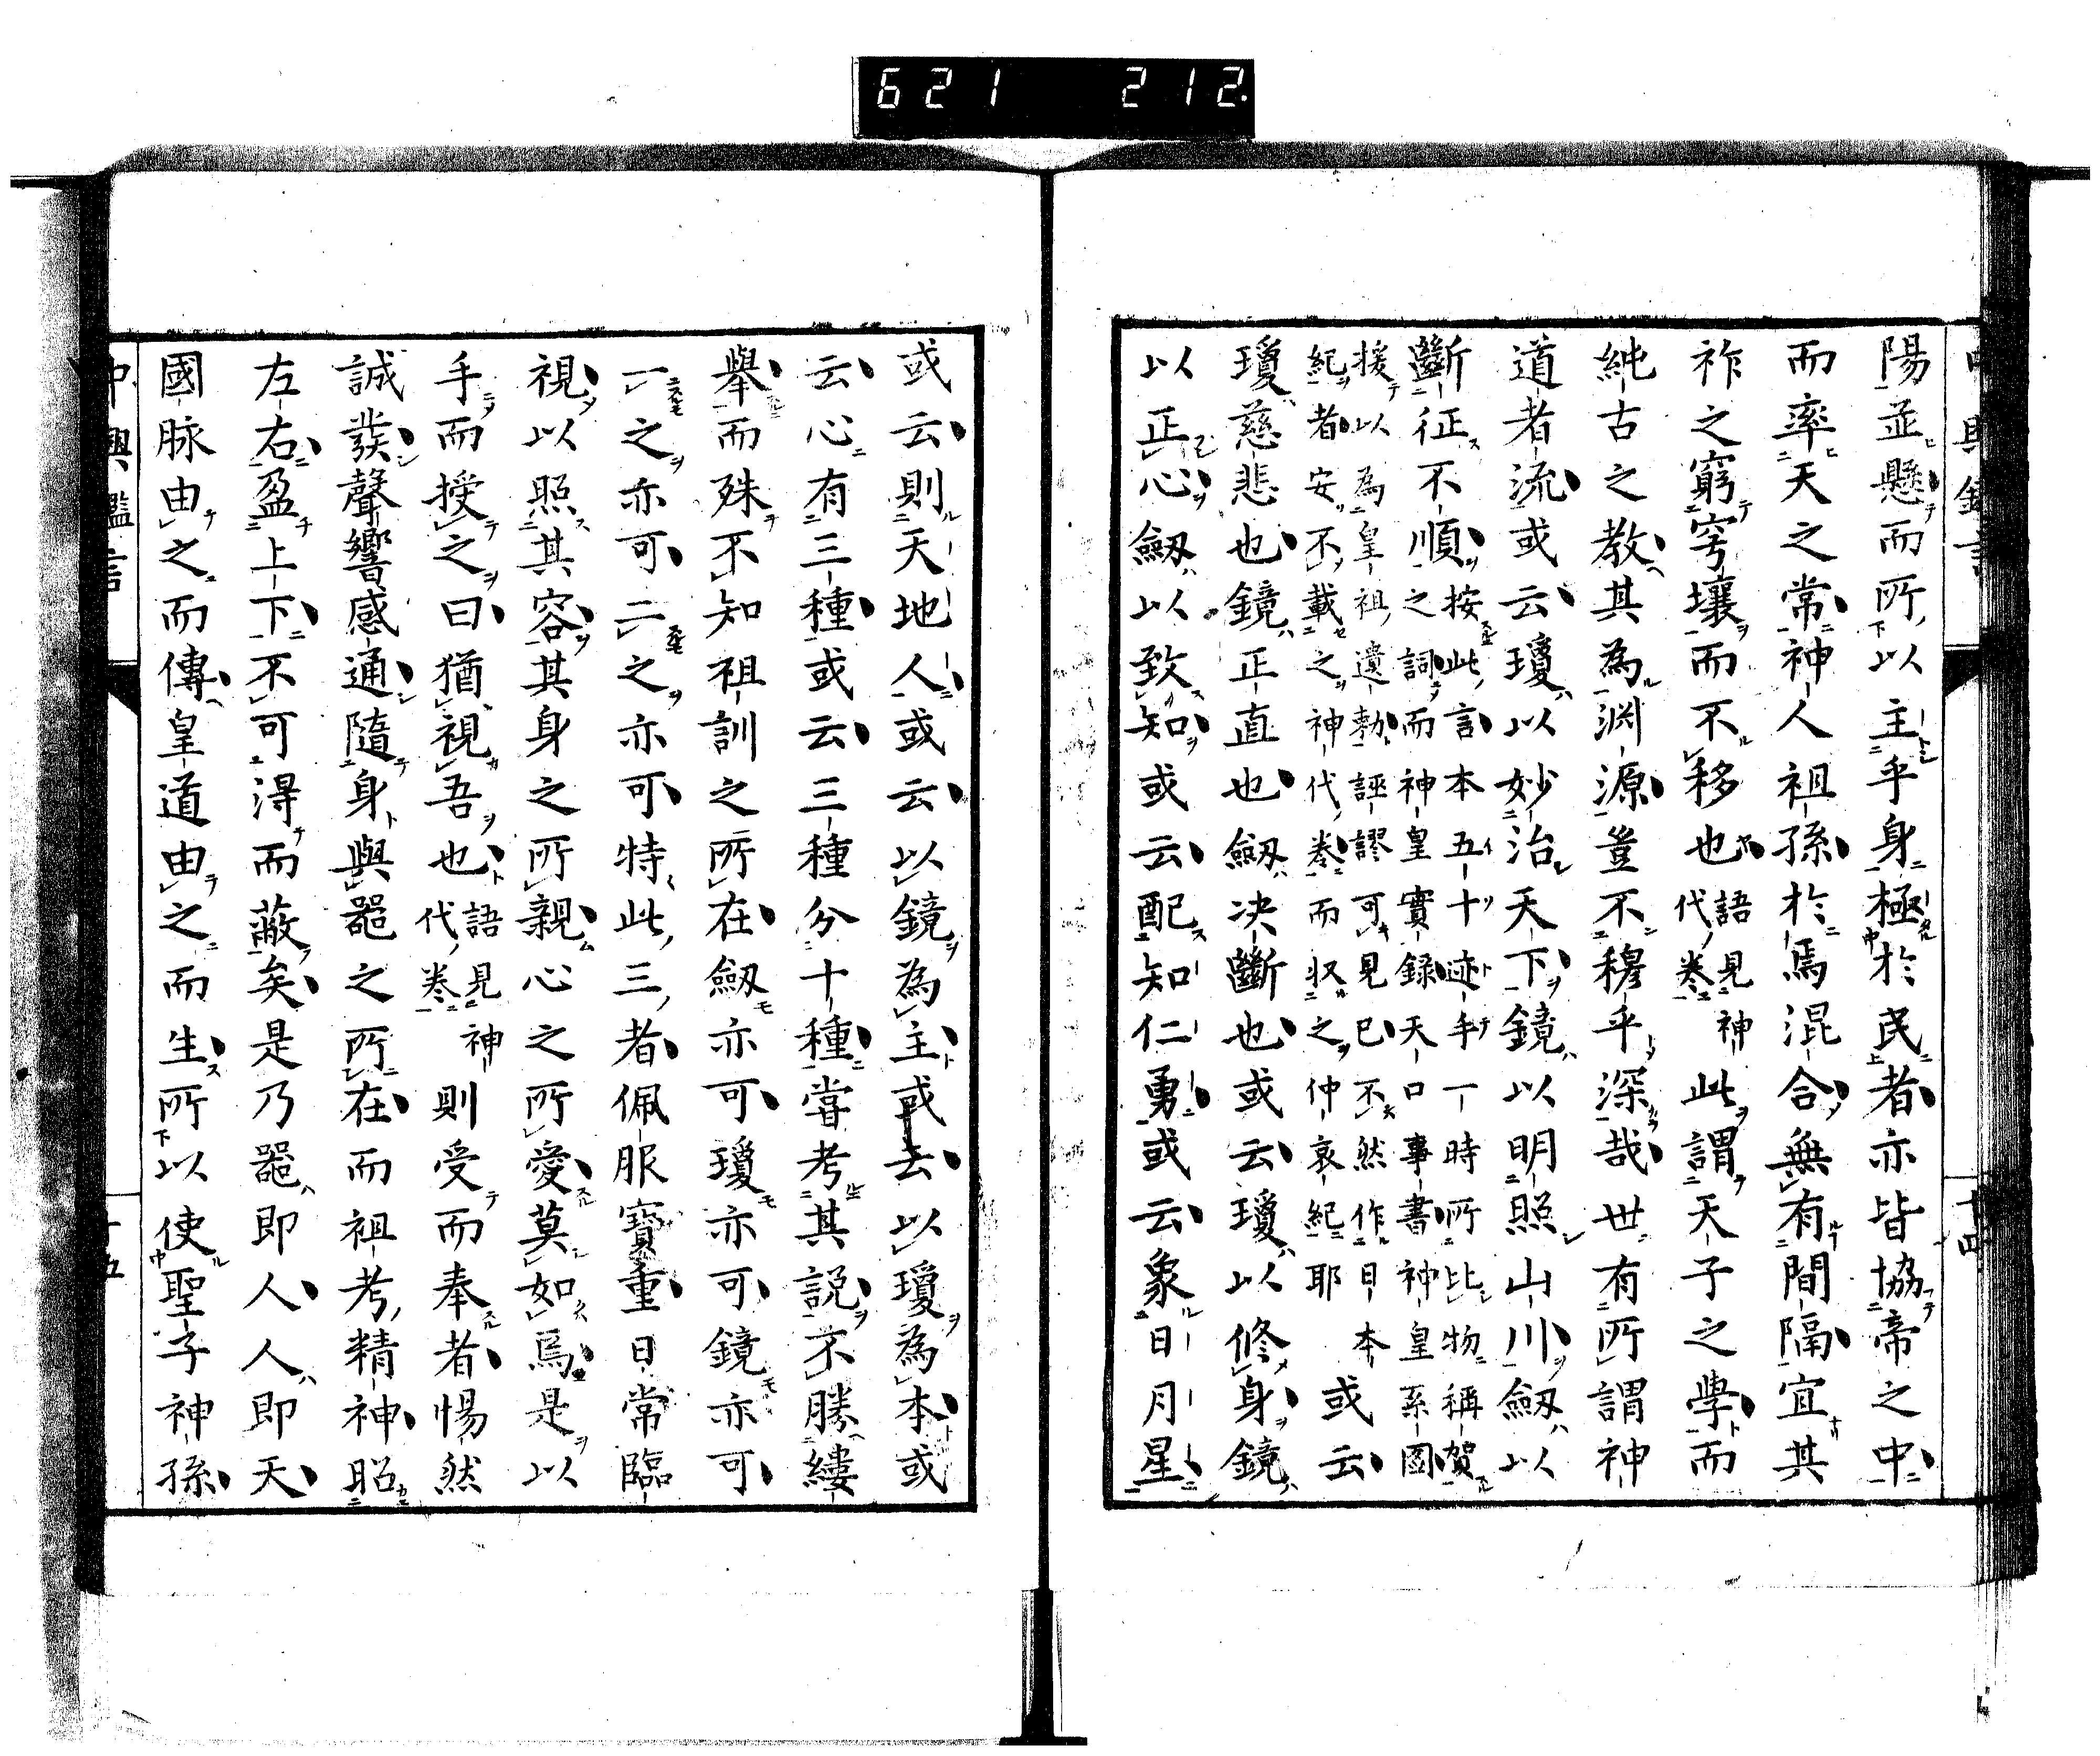 621 212
陽並懸而所以主乎身極於民者亦皆協帝之中
而率天之常神人祖孫於焉混合無有間隔宜其
祚之窮穹壤而不移也語見神代卷此謂天子之學而
純古之教其為淵源豈不穆乎深哉世有所謂神
道者流或云瓊以妙治天下鏡以明照山川劔以
斷征不順按此言本五十迹手一時所比物稱賀之詞而神皇實錄天口事書神皇系圖
援以為皇祖遺勅誣謬可見已不然作日本紀者安不載之神代卷而収之仲哀紀耶或云
瓊慈悲也鏡正直也劔决斷也或云瓊以修身鏡
以正心劔以致知或云配知仁勇或云象日月星
或云則天地人或云以鏡為主或云以瓊為本或
云心有三種或云三種分十種嘗考其説不勝縷
舉而殊不知祖訓之所在劔亦可瓊亦可鏡亦可
一之亦可二之亦可特此三者佩服寶重日常臨
視以照其容其身之所親心之所愛莫如焉是以
手而授之曰猶視吾也語見神代卷則受而奉者惕然
誠發聲響感通隨身與噐之所在而祖考精神昭
左右盈上下不可得而蔽矣是乃噐即人人即天
國脉由之而傳皇道由之而生所以使聖子神孫
中興鑑言
十五